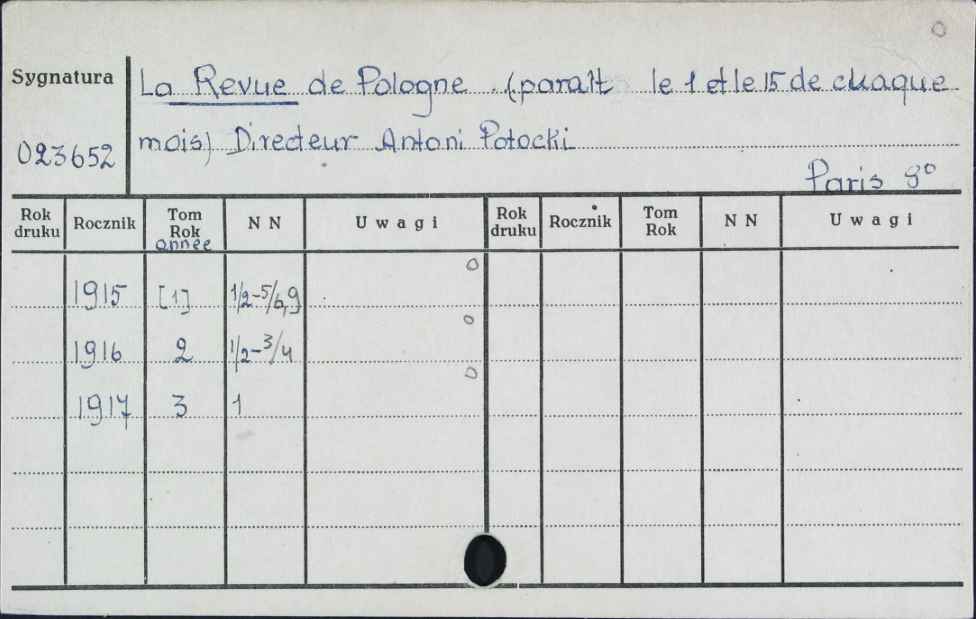 Sygnatura
023652
La Revue de Pologne (paraît le 1 et le 15 de chaque
mois) Directeur Antoni Potocki
Paris 8°
Rok druku Rocznik Tom Rok année N N Uwagi Rok druku Rocznik Tom Rok N N Uwagi
1915 [1] 1/2-5/6,9
1916 2 1/2-3/4
1917 3 1